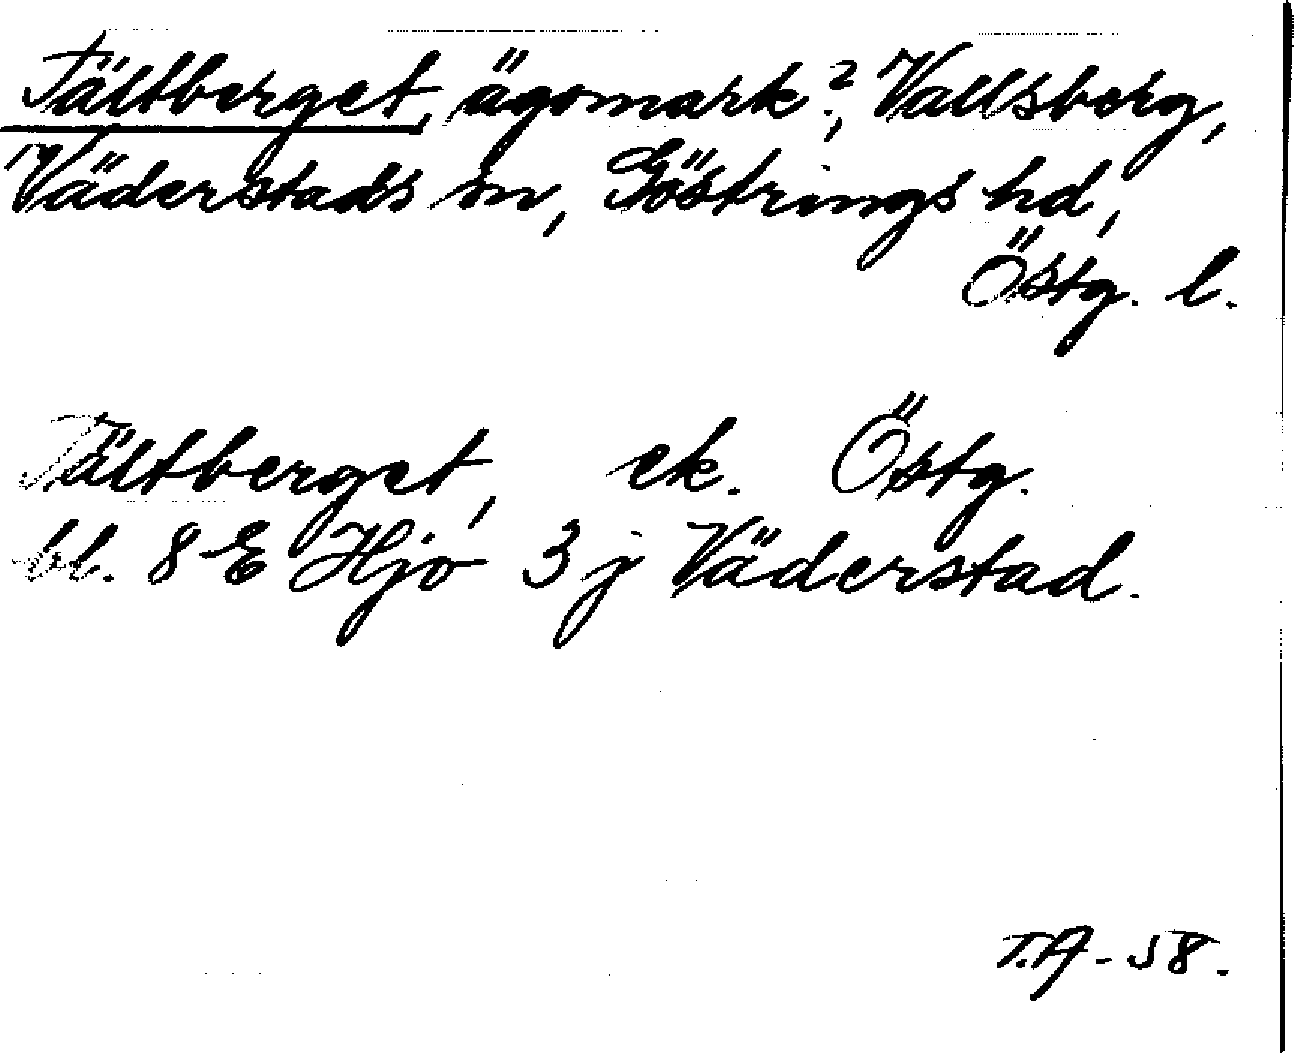 Tältberget, ägomark?, Vallsberg,
Väderstads sn, Göstrings hd,
Östg. l.
Tältberget, ek. Östg.
bl. 8 E Hjo 3 j Väderstad.
T.A - 58.